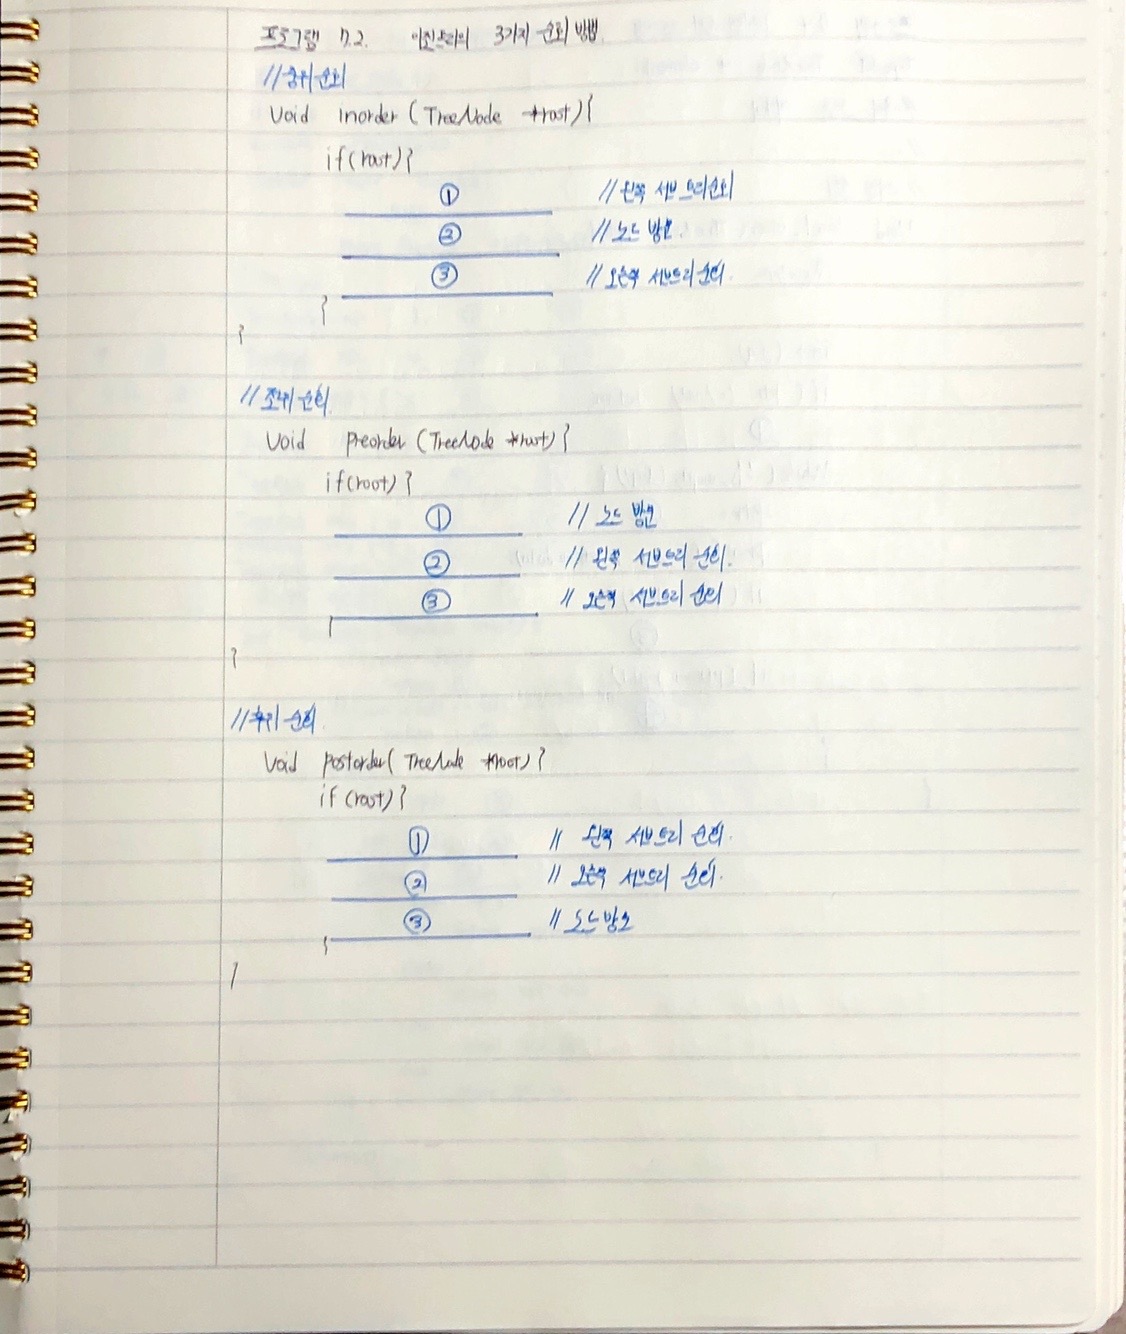 프로그램 7.2. 이진트리의 3가지 순회 방법
//중위 순회
Void inorder (TreeNode *root) {
if(root) {
① //왼쪽 서브트리순회
② //노드 방문.
③ //오른쪽 서브트리 순회.
}
}
// 전위 순회.
Void preorder (TreeNode *root) {
if(root) {
① // 노드 방문
② // 왼쪽 서브트리 순회.
③ // 오른쪽 서브트리 순회
}
}
//후위 순회.
Void postorder( TreeNode *root) {
if (root) {
① // 왼쪽 서브트리 순회.
② // 오른쪽 서브트리 순회.
③ // 노드방문
}
}